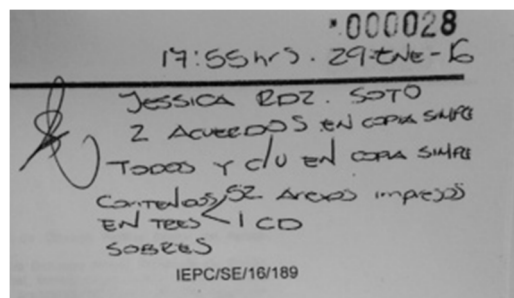 *000028
17:55hrs. 29-ENE-16
JESSICA RDZ. SOTO
2 ACUERDOS EN COPIA SIMPLE
TODOS Y C/U EN COPIA SIMPLE
Contenidos, 52 Anexos impresos
EN TRES < 1 CD
SOBRES
IEPC/SE/16/189